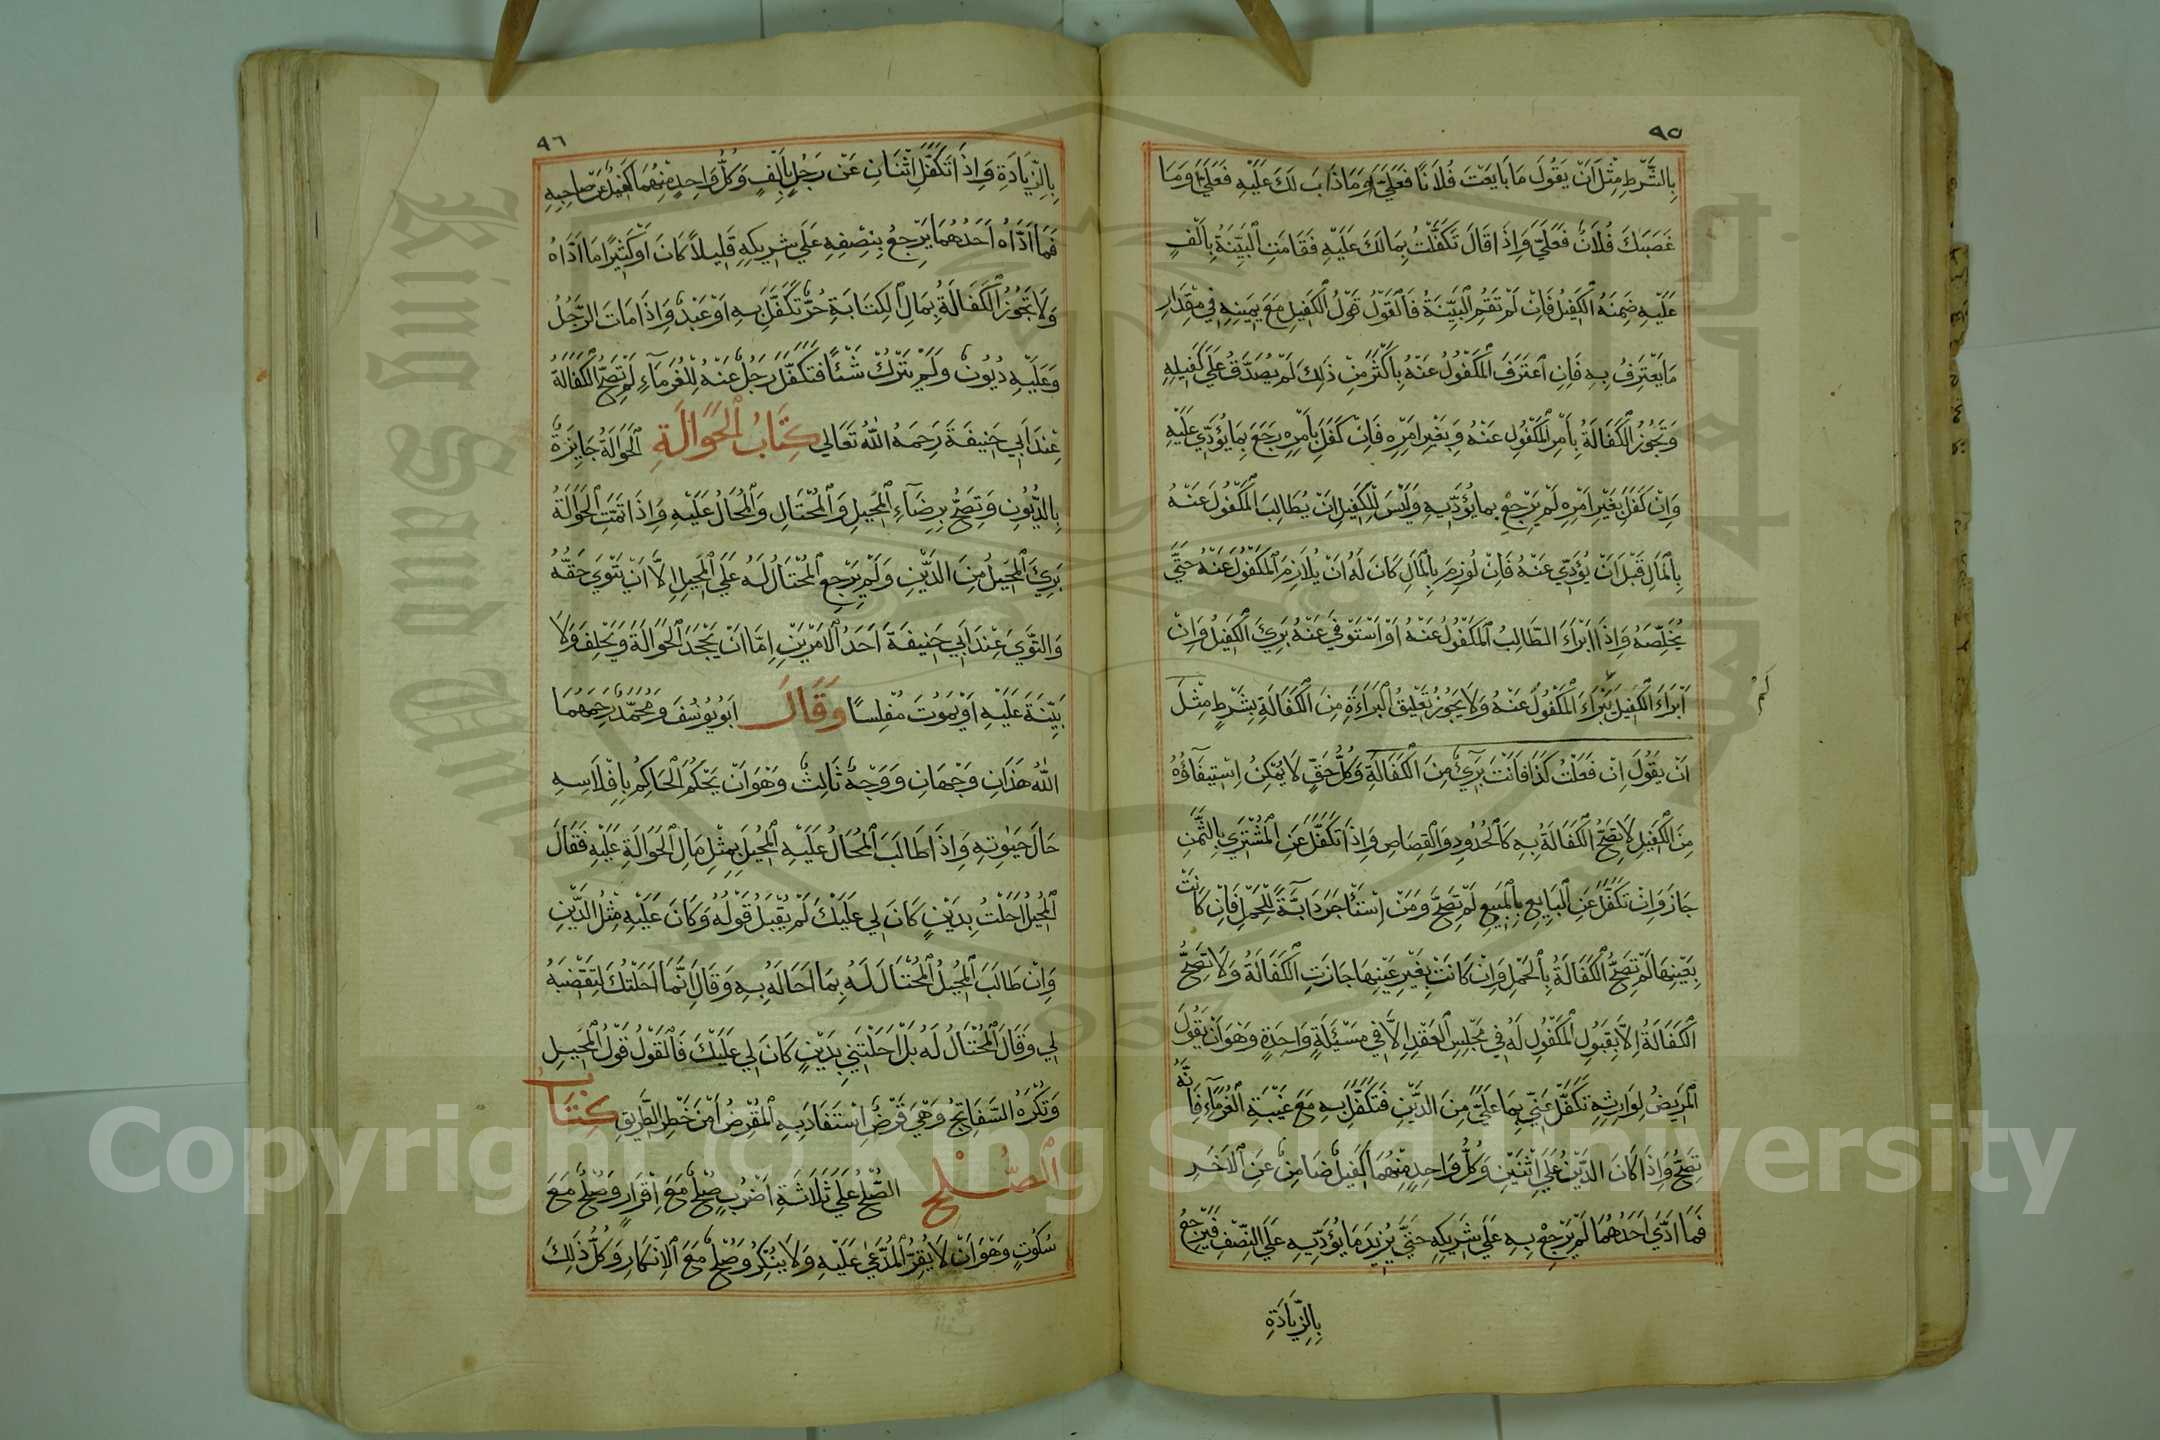 ٩٥
بِالشَّرْطِ مِثْلَ اَنْ يَقُولَ مَا بَايَعْتَ فُلَانًا فَعَلَيَّ وَمَا ذَابَ لَكَ عَلَيْهِ فَعَلَيَّ وَمَا
غَصَبَكَ فُلَانٌ فَعَلَيَّ وَاِذَا قَالَ تَكَفَّلْتُ بِمَالَكَ عَلَيْهِ فَقَامَتِ الْبَيِّنَةُ بِاَلْفٍ
عَلَيْهِ ضَمِنَهُ الْكَفِيلُ فَاِنْ لَمْ تَقُمِ الْبَيِّنَةُ فَالْقَوْلُ قَوْلُ الْكَفِيلِ مَعَ يَمِينِهِ فِي مِقْدَارِ
مَا يَعْتَرِفُ بِهِ فَاِنِ اعْتَرَفَ الْمَكْفُولُ عَنْهُ بِاَكْثَرَ مِنْ ذَلِكَ لَمْ يُصَدَّقْ عَلَي كَفِيلِهِ
وَتَجُوزُ الْكَفَالَةُ بِاَمْرِ الْمَكْفُولِ عَنْهُ وَبِغَيْرِ اَمْرِهِ فَاِنْ كَفَلَ بِاَمْرِهِ رَجَعَ بِمَا يُؤَدِّي عَلَيْهِ
وَاِنْ كَفَلَ بِغَيْرِ اَمْرِهِ لَمْ يَرْجِعْ بِمَا يُؤَدِّيهِ وَلَيْسَ لِلْكَفِيلِ اَنْ يُطَالِبَ الْمَكْفُولَ عَنْهُ
بِالْمَالِ قَبْلَ اَنْ يُؤَدِّي عَنْهُ فَاِنْ لُوزِمَ بِالْمَالِ كَانَ لَهُ اَنْ يُلَازِمَ الْمَكْفُولَ عَنْهُ حَتَّي
يُخَلِّصَهُ وَاِذَا اَبْرَاَ الطَّالِبُ الْمَكْفُولَ عَنْهُ اَوْ اسْتَوْفَي عَنْهُ بَرِئَ الْكَفِيلُ وَاِنْ
اَبْرَاَ الْكَفِيلَ يَبْرَاَ الْمَكْفُولُ عَنْهُ وَلَا يَجُوزُ تَعْلِيقُ الْبَرَاءَةِ مِنَ الْكَفَالَةِ بِشَرْطٍ مِثْلَ
لَمْ
اَنْ يَقُولَ اِنْ فَعَلْتَ كَذَا فَانْتَ بَرِيءٌ مِنَ الْكَفَالَةِ وَكُلُّ حَقٍّ لَا يُمْكِنُ اِسْتِيفَاؤُهُ
مِنَ الْكَفِيلِ لَا يَصِحُّ الْكَفَالَةُ بِهِ كَالْحُدُودِ وَالْقِصَاصِ وَاِذَا تَكَفَّلَ عَنِ الْمُشْتَرِي بِالثَّمَنِ
جَازَ وَاِنْ تَكَفَّلَ عَنِ الْبَايِعِ بِالْمَبِيعِ لَمْ تَصِحَّ وَمَنْ اِسْتَأْجَرَ دَابَّةً لِلْحَمْلِ فَاِنْ كَانَتْ
بِعَيْنِهَا لَمْ تَصِحَّ الْكَفَالَةُ بِالْحَمْلِ وَاِنْ كَانَتْ بِغَيْرِ عَيْنِهَا جَازَتِ الْكَفَالَةُ وَلَا تَصِحُّ
الْكَفَالَةُ اِلَّا بِقَبُولِ الْمَكْفُولِ لَهُ فِي مَجْلِسِ الْعَقْدِ اِلَّا فِي مَسْئَلَةٍ وَاحِدَةٍ وَهْوَ اَنْ يَقُولَ
الْمَرِيضُ لِوَارِثِهِ تَكَفَّلْ عَنِّي بِمَا عَلَيَّ مِنَ الدَّيْنِ فَتَكَفَّلَ بِهِ مَعَ غَيْبَةِ الْغُرَمَاءِ فَاِنَّهُ
تَصِحُّ وَاِذَا كَانَ الدَّيْنُ عَلَي اِثْنَيْنِ وَكُلُّ وَاحِدٍ مِنْهُمَا كَفِيلٌ ضَامِنٌ عَنِ الْاَخَرِ
فَمَا اَدَّي اَحَدُهُمَا لَمْ يَرْجِعْ بِهِ عَلَي شَرِيكِهِ حَتَّي يَزِيدَ مَا يُؤَدِّيهِ عَلَي النِّصْفِ فَيَرْجِعُ
بِالزِّيَادَةِ
٩٦
بِالزِّيَادَةِ وَاِذَا تَكَفَّلَ اِثْنَانِ عَنْ رَجُلٍ بِاَلْفٍ وَكُلُّ وَاحِدٍ مِنْهُمَا كَفِيلٌ عَنْ صَاحِبِهِ
فَمَا اَدَّاهُ اَحَدُهُمَا يَرْجِعُ بِنِصْفِهِ عَلَي شَرِيكِهِ قَلِيلاً كَانَ اَوْ كَثِيرًا مَا اَدَّاهُ
وَلَا تَجُوزُ الْكَفَالَةُ بِمَالِ الْكِتَابَةِ حُرٌّ تَكَفَّلَ بِهِ اَوْ عَبْدٌ وَاِذَا مَاتَ الرَّجُلُ
وَعَلَيْهِ دُيُونٌ وَلَمْ يَتْرُكْ شَيْئًا فَتَكَفَّلَ رَجُلٌ عَنْهُ لِلْغُرَمَاءِ لَمْ تَصِحَّ الْكَفَالَةُ
عِنْدَ اَبِي حَنِيفَةَ رَحِمَهُ اللّٰهُ تَعَالَي كِتَابُ الْحَوَالَةِ اَلْحَوَالَةُ جَايِزَةٌ
بِالدُّيُونِ وَتَصِحُّ بِرِضَاءِ الْمُحِيلِ وَالْمُحْتَالِ وَالْمُحَالُ عَلَيْهِ وَاِذَا تَمَّتِ الْحَوَالَةُ
بَرِئَ الْمُحِيلُ مِنَ الدَّيْنِ وَلَمْ يَرْجِعِ الْمُحْتَالُ لَهُ عَلَي الْمُحِيلِ اِلَّا اَنْ يَتْوِيَ حَقُّهُ
وَالتَّوَي عِنْدَ اَبِي حَنِيفَةَ اَحَدُ الْاَمْرَيْنِ اِمَّا اَنْ يَجْحَدَ الْحَوَالَةَ وَيَحْلِفَ وَلَا
بَيِّنَةَ عَلَيْهِ اَوْ يَمُوتَ مُفْلِسًا وَقَالَ اَبُو يُوسُفَ وَمُحَمَّدٌ رَحِمَهُمَا
اللّٰهُ هَذَانِ وَجْهَانِ وَوَجْهٌ ثَالِثٌ وَهْوَ اَنْ يَحْكُمَ الْحَاكِمُ بِاِفْلَاسِهِ
حَالَ حَيٰوتِهِ وَاِذَا طَالَبَ الْمُحَالُ عَلَيْهِ الْمُحِيلَ بِمِثْلِ مَالِ الْحَوَالَةِ عَلَيْهِ فَقَالَ
الْمُحِيلُ اَحَلْتُ بِدَيْنٍ كَانَ لِي عَلَيْكَ لَمْ يُقْبَلْ قَوْلُهُ وَكَانَ عَلَيْهِ مِثْلُ الدَّيْنِ
وَاِنْ طَالَبَ الْمُحِيلُ الْمُحْتَالَ لَهُ بِمَا اَحَالَهُ بِهِ وَقَالَ اِنَّمَا اَحَلْتُكَ لِتَقْضِبَهُ
لِي وَقَالَ الْمُحْتَالُ لَهُ بَلْ اَحَلْتَنِي بِدَيْنٍ كَانَ لِي عَلَيْكَ فَالْقَوْلُ قَوْلُ الْمُحِيلِ
وَتُكْرَهُ السَّفَاتِجُ وَهْيَ قَرْضٌ اِسْتَفَادَ بِهِ الْمُقْرِضُ اَمْنَ خَطَرِ الطَّرِيقِ كِتَابُ
الصُّلْحِ الصُّلْحُ عَلَي ثَلَاثَةِ اَضْرُبٍ صُلْحٌ مَعَ اِقْرَارٍ وَصُلْحٌ مَعَ
سُكُوتٍ وَهْوَ اَنْ لَا يُقِرَّ الْمُدَّعٰي عَلَيْهِ وَلَا يُنْكِرُ وَصُلْحٌ مَعَ الْاِنْكَارِ وَكُلُّ ذَلِكَ
Copyright © King Saud University